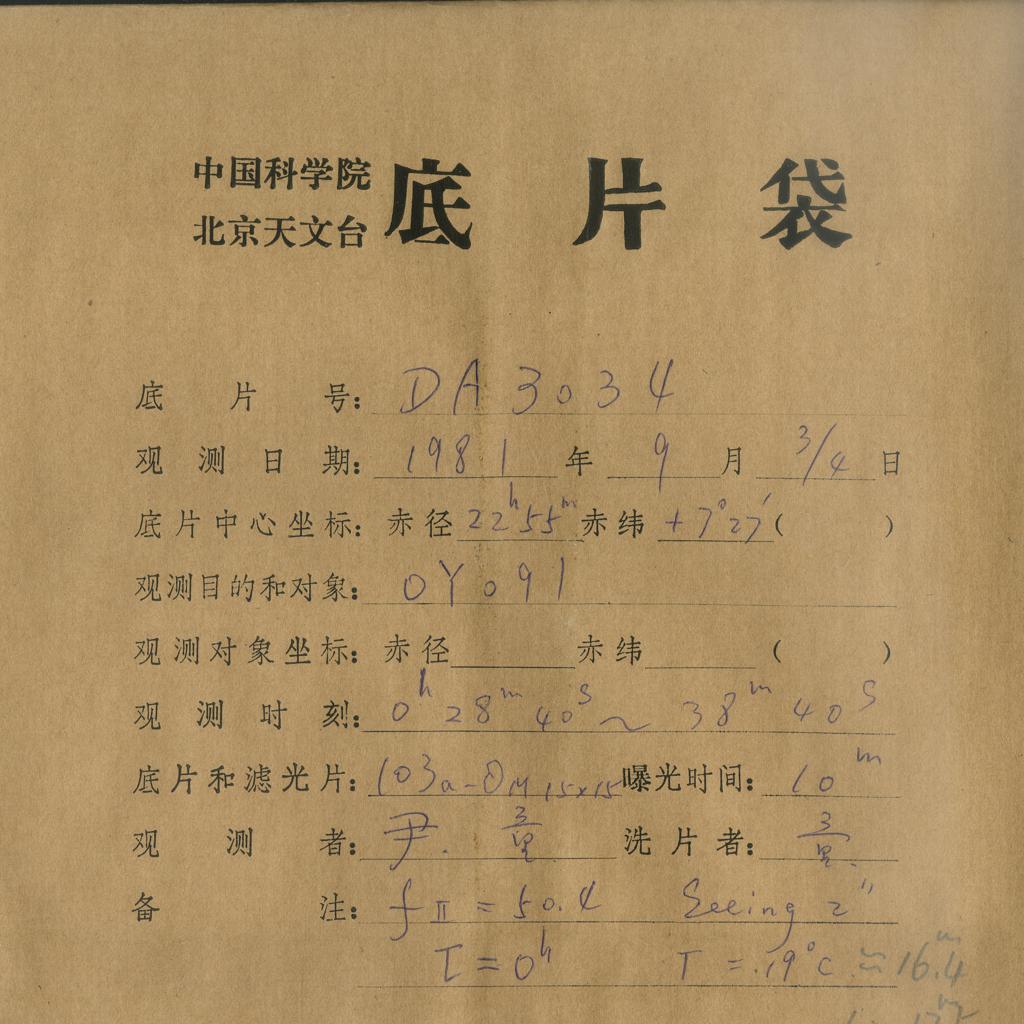 中国科学院
北京天文台
底片袋
底片号: DA3034
观测日期: 1981年9月3/4日
底片中心坐标: 赤径22h55m赤纬+7°27′( )
观测目的和对象: OY091
观测对象坐标: 赤径 赤纬 ( )
观测时刻: 0h28m40s~38m40s
底片和滤光片: 103a-O M 15×15 曝光时间: 10m
观测者: 尹. 洗片者:
备注: fII=50.4 Seeing 2″
t=0h T=19°C ≈16m.4